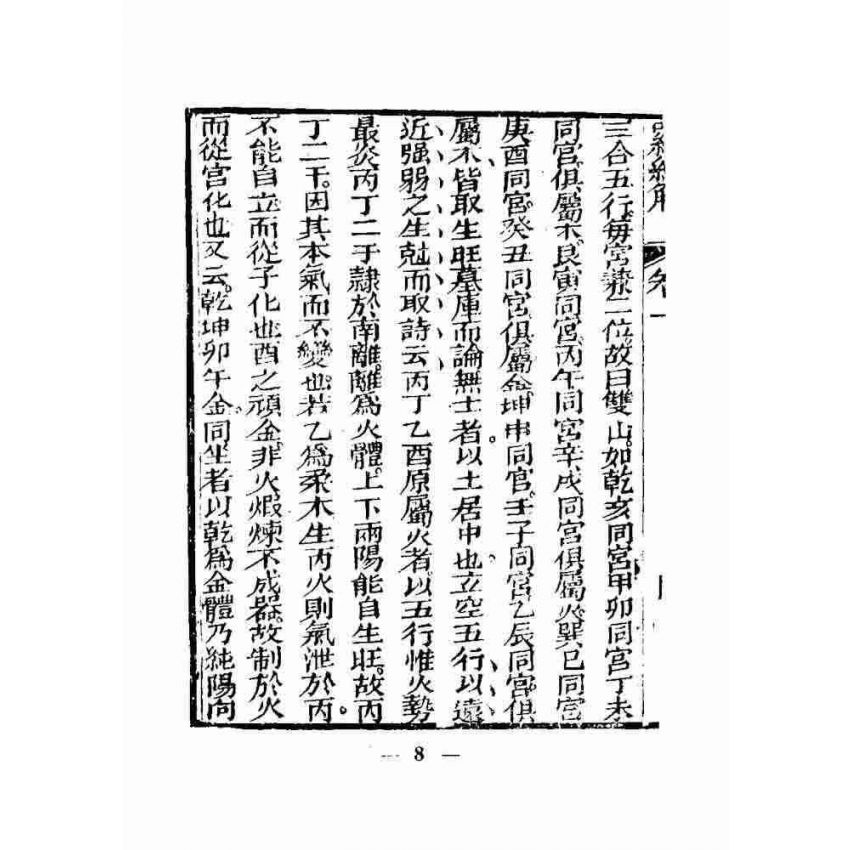 羅經解 卷一
三合五行每宮兼二位故曰雙山。如乾亥同宮甲卯同宮丁未
同宮俱屬木。艮寅同宮。丙午同宮辛戌同宮俱屬火。巽巳同宮
庚酉同宮。癸丑同宮。俱屬金。坤申同宮。壬子同宮乙辰同宮。俱
屬水皆取生旺墓庫而論無土者以土居中也立空五行以遠
近强弱之生尅而取詩云丙丁乙酉原屬火者以五行惟火勢
最炎丙丁二干隷於南離。離爲火體。上下兩陽能自生旺。故丙
丁二干。因其本氣而不變也若乙爲柔木生丙火則氣泄於丙。
不能自立而從子化也酉之頑金。非火煆煉不成器。故制於火
而從官化也又云。乾坤卯午金。同坐者以乾爲金體乃純陽向
— 8 —